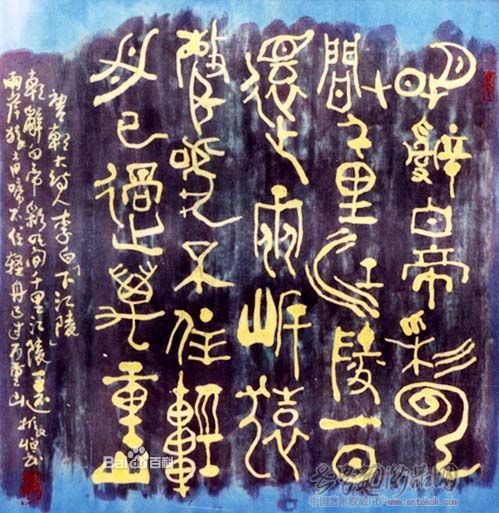 朝辭白帝彩雲
間千里江陵一日
還兩岸猿
聲啼不住輕
舟已過萬重山
唐朝大詩人李白「下江陵」
朝辭白帝彩雲间千里江陵一日还
兩岸猿声啼不住轻舟已过万重山
Bai百科